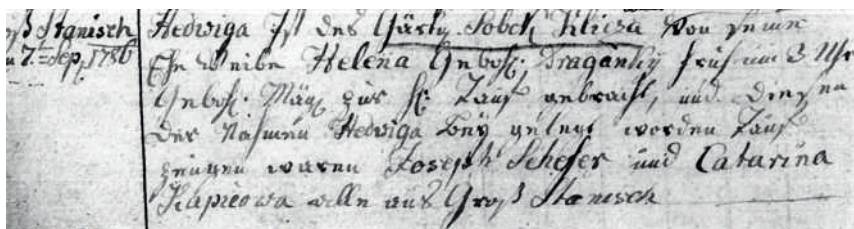 oß Stanisch
7. Sep. 1786
Hedwiga Ist des Gärtn. Sobek Klicza Von seine
Ehe Weibe Helena Geboh. Draganky früh um 3 Uhr
Geboh. zur H: Tauf gebracht, und diesen
der Nahmen Hedwiga bey gelegt worden Tauf
zeugen waren Joseph Schefer und Catarina
Kapicowa alle aus Groß Stanisch